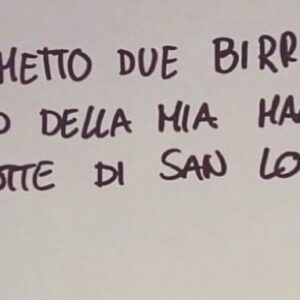 METTO DUE BIRR
O DELLA MIA MA
OTTE DI SAN LO